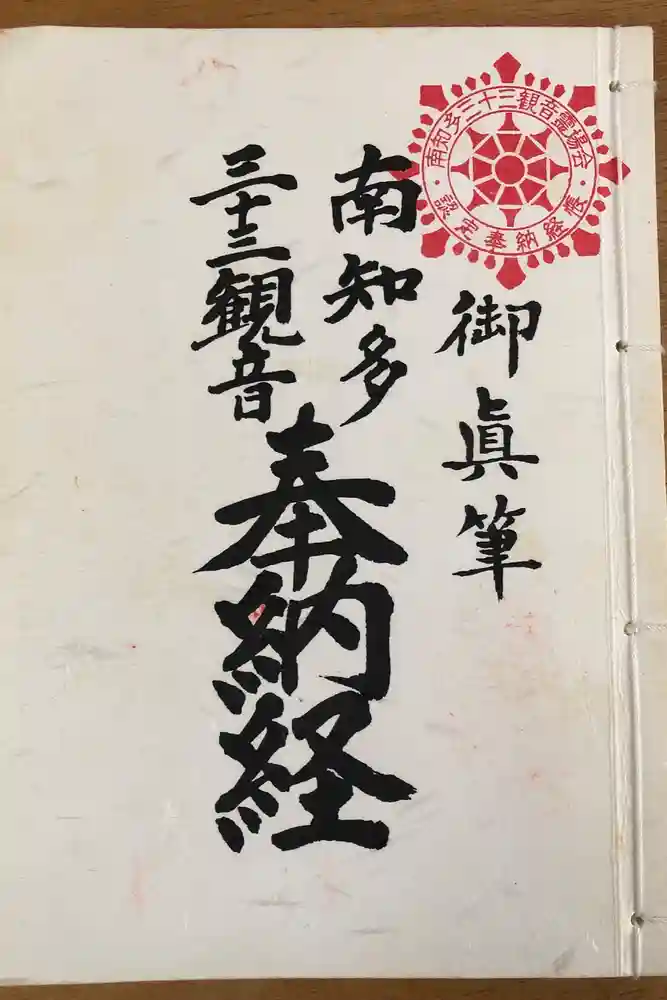 南知多三十三観音霊場会
認定奉納経帳
御眞筆
南知多
三十三観音
奉納経